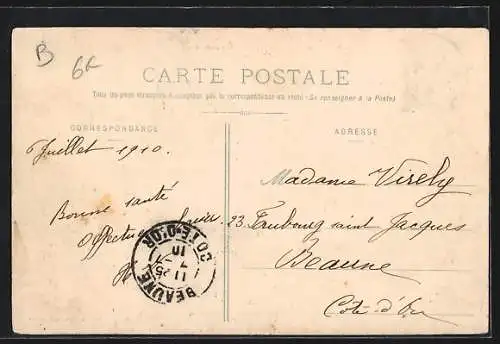 B
6R
CARTE POSTALE
Tous les pays étrangers n'acceptent pas la correspondance au recto (Se renseigner à la Poste)
CORRESPONDANCE
ADRESSE
6 Juillet 1910.
Madame Virely
Bonne santé
23 Faubourg saint Jacques
BEAUNE
11 25
7 - 7
10
COTE-D'OR
Beaune
Côte-d'Or